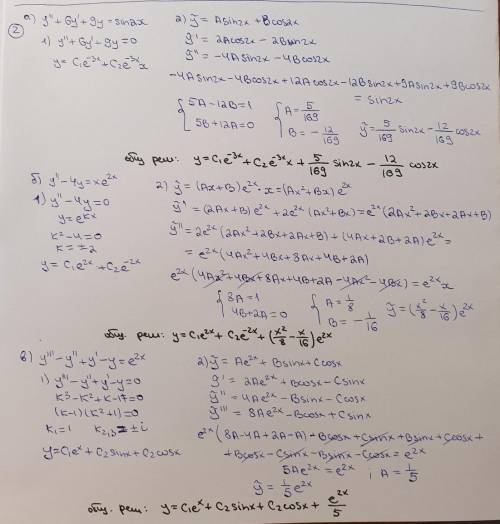 ②
а) y''+6y'+9y=sin2x
1) y''+6y'+9y=0
y=C₁e^{-3x}+C₂e^{-3x}x
2) ỹ=Asin2x+Bcos2x
ỹ'=2Acos2x-2Bsin2x
ỹ''=-4Asin2x-4Bcos2x
-4Asin2x-4Bcos2x+12Acos2x-12Bsin2x+9Asin2x+9Bcos2x
=sin2x
{5A-12B=1 {A=5/169
5B+12A=0 B=-12/169 ỹ=5/169 sin2x-12/169 cos2x
общ. реш: y=C₁e^{-3x}+C₂e^{-3x}x+5/169 sin2x-12/169 cos2x
б) y''-4y=xe^{2x}
1) y''-4y=0
y=e^{kx}
k²-4=0
k=±2
y=C₁e^{2x}+C₂e^{-2x}
2) ỹ=(Ax+B)e^{2x}·x=(Ax²+Bx)e^{2x}
ỹ'=(2Ax+B)e^{2x}+2e^{2x}(Ax²+Bx)=e^{2x}(2Ax²+2Bx+2Ax+B)
ỹ''=2e^{2x}(2Ax²+2Bx+2Ax+B)+(4Ax+2B+2A)e^{2x}=
=e^{2x}(4Ax²+4Bx+8Ax+4B+2A)
e^{2x}(4Ax²+4Bx+8Ax+4B+2A-4Ax²-4Bx)=e^{2x}x
{8A=1 {A=1/8
4B+2A=0 B=-1/16 ỹ=(x²/8-x/16)e^{2x}
общ. реш: y=C₁e^{2x}+C₂e^{-2x}+(x²/8-x/16)e^{2x}
в) y'''-y''+y'-y=e^{2x}
1) y'''-y''+y'-y=0
k³-k²+k-1=0
(k-1)(k²+1)=0
k₁=1 k₂,₃=±i
y=C₁e^x+C₂sinx+C₂cosx
2) ỹ=Ae^{2x}+Bsinx+Ccosx
ỹ'=2Ae^{2x}+Bcosx-Csinx
ỹ''=4Ae^{2x}-Bsinx-Ccosx
ỹ'''=8Ae^{2x}-Bcosx+Csinx
e^{2x}(8A-4A+2A-A)-Bcosx+Csinx+Bsinx+Ccosx+
+Bcosx-Csinx-Bsinx-Ccosx=e^{2x}
5Ae^{2x}=e^{2x} ; A=1/5
ỹ=1/5 e^{2x}
общ. реш: y=C₁e^x+C₂sinx+C₂cosx+e^{2x}/5